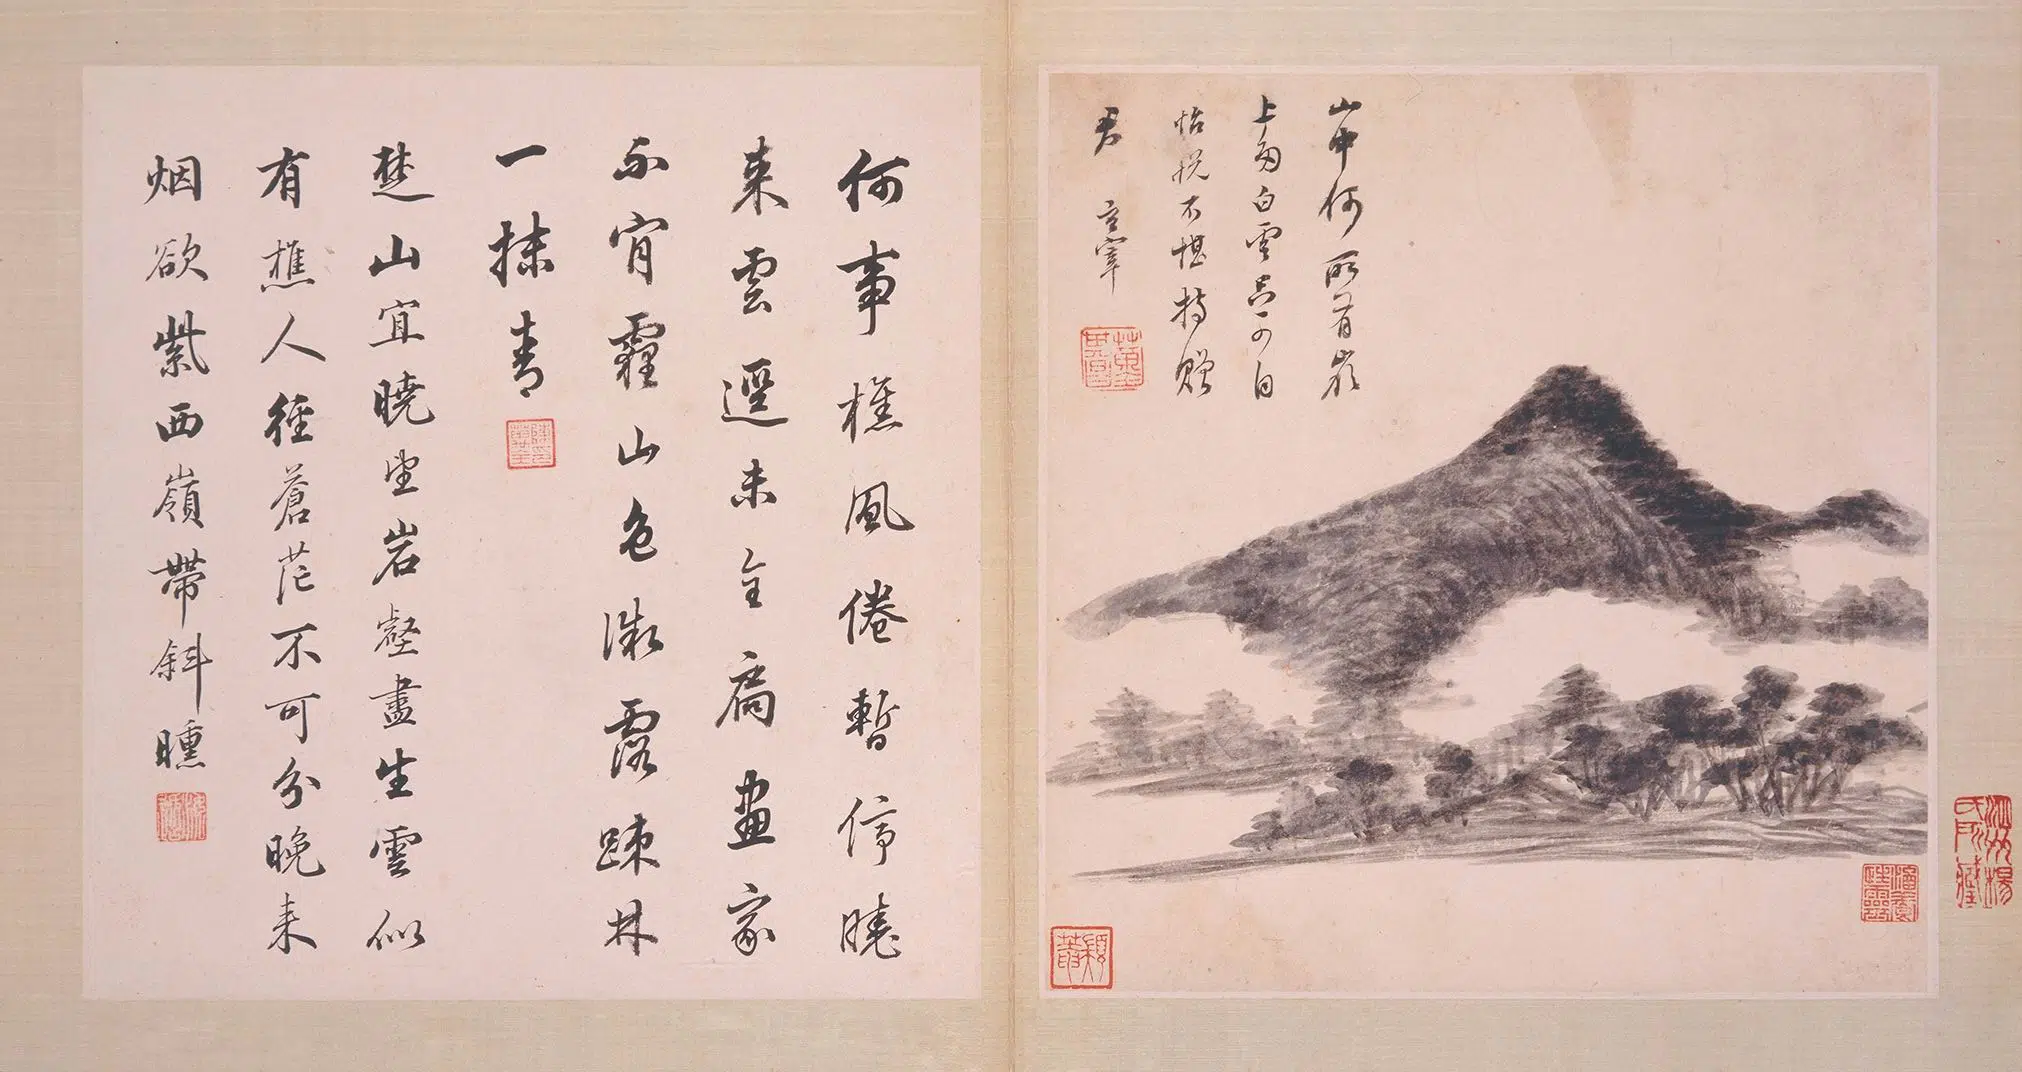 山中何所有嶺
上多白雲只可自
怡悅不堪持贈
君 玄宰
何事樵風倦暫停曉
來雲逕未全扃畫家
不肯霾山色微露踈林
一抹青
楚山宜曉望岩壑盡生雲似
有樵人徑蒼茫不可分晚來
烟欲紫西嶺帶斜曛